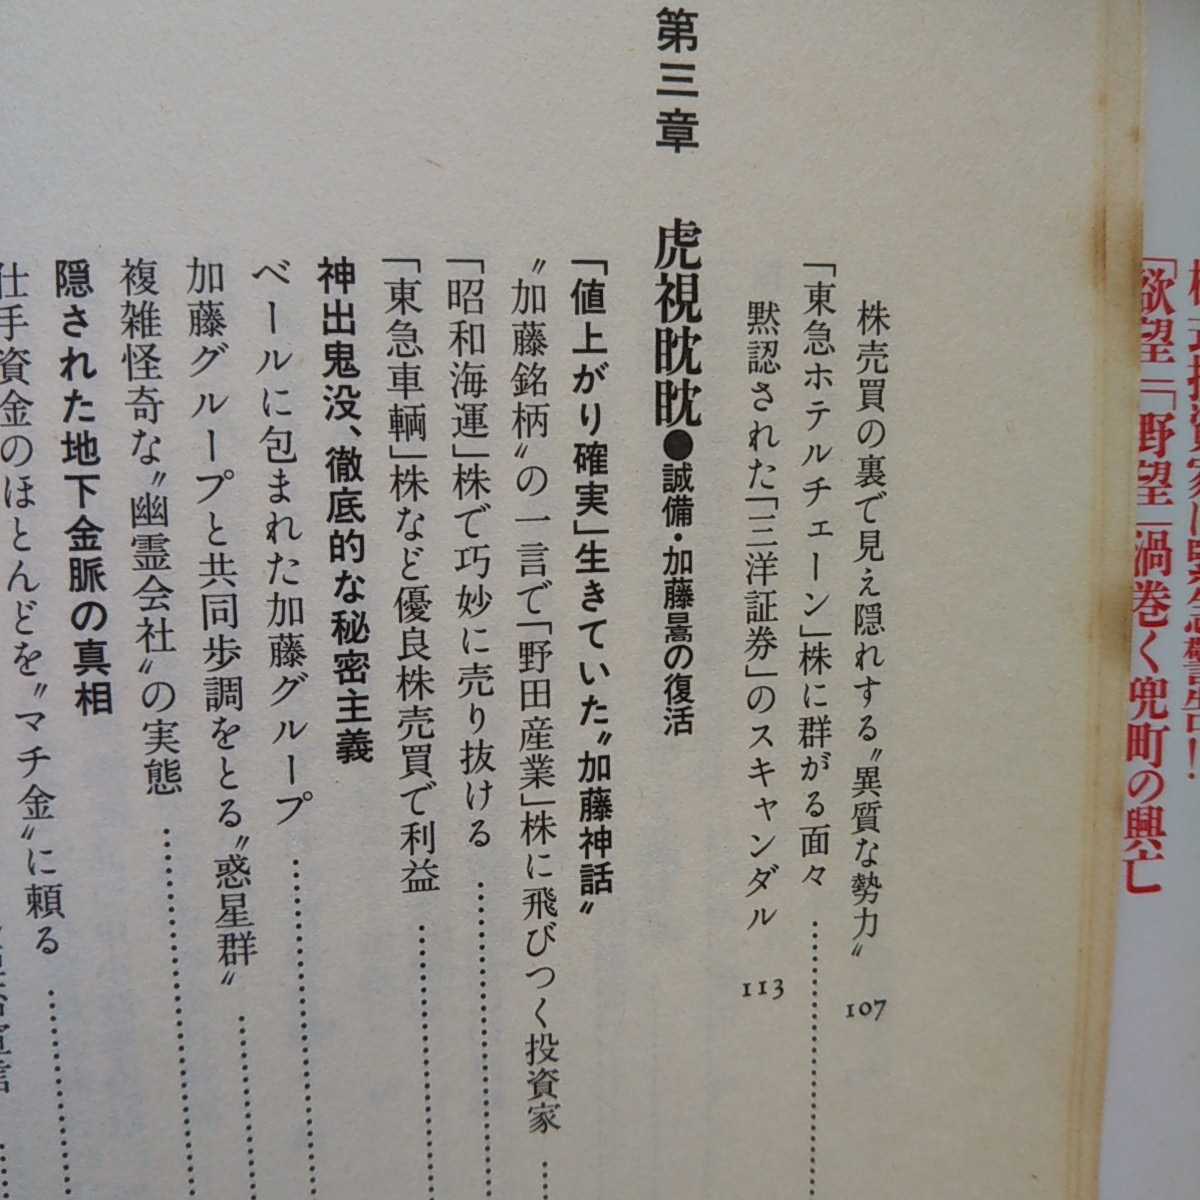 「欲望」「野望」渦巻く兜町の興亡
株売買の裏で見え隠れする〝異質な勢力〟
107
「東急ホテルチェーン」株に群がる面々
黙認された「三洋証券」のスキャンダル
113
第三章 虎視眈眈●誠備・加藤暠の復活
「値上がり確実」生きていた〝加藤神話〟
〝加藤銘柄〟の一言で「野田産業」株に飛びつく投資家
「昭和海運」株で巧妙に売り抜ける
「東急車輛」株など優良株売買で利益
神出鬼没、徹底的な秘密主義
ベールに包まれた加藤グループ
加藤グループと共同歩調をとる〝惑星群〟
複雑怪奇な〝幽霊会社〟の実態
隠された地下金脈の真相
仕手資金のほとんどを〝マチ金〟に頼る